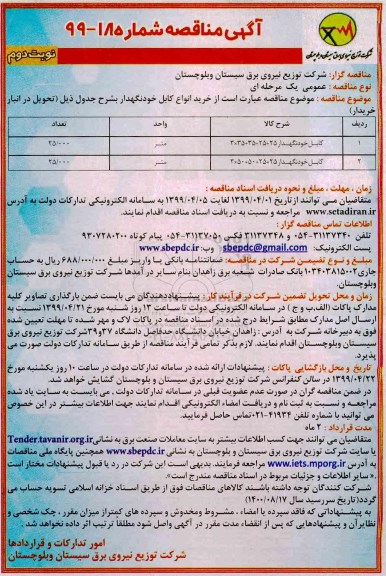 آگهی مناقصه شماره ۱۸-۹۹
نوبت دوم
شرکت توزیع نیروی برق سیستان و بلوچستان
مناقصه گزار: شرکت توزیع نیروی برق سیستان وبلوچستان
نوع مناقصه : عمومی یک مرحله ای
موضوع مناقصه : موضوع مناقصه عبارت است از خرید انواع کابل خودنگهدار بشرح جدول ذیل (تحویل در انبار
خریدار)
ردیف شرح کالا واحد تعداد
۱ کابل خودنگهدار متر ۲۵/۰۰۰
۲ کابل خودنگهدار متر ۲۵/۰۰۰
زمان ، مهلت ، مبلغ و نحوه دریافت اسناد مناقصه :
متقاضیان می توانند از تاریخ ۱۳۹۹/۰۴/۰۱ لغایت ۱۳۹۹/۰۴/۰۵ به سامانه الکترونیکی تدارکات دولت به آدرس
www.setadiran.ir مراجعه و نسبت به دریافت اسناد مناقصه اقدام نمایند.
اطلاعات تماس مناقصه گزار:
تلفن ۳۱۱۳۷۳۴۰-۰۵۴ و ۳۱۱۳۷۳۴۸ فکس ۳۱۱۳۷۰۵۰-۰۵۴ پیام کوتاه ۹۳۰۷۲۸۰۲۰۰
پست الکترونیکی: sbepdc@gmail.com وب: www.sbepdc.ir
مبلغ و نوع تضمین شرکت در مناقصه: ضمانتنامه بانکی یا واریز مبلغ ۶۸۸/۰۰۰/۰۰۰ ریال به حساب
جاری ۰۱۰۳۴۰۳۸۱۵۰۰۲ بانک صادرات شعبه برق زاهدان بنام سایر در آمدها شرکت توزیع نیروی برق سیستان
وبلوچستان.
زمان و محل تحویل تضمین شرکت در فرآیند کار: پیشنهاددهندگان می بایست ضمن بارگذاری تصاویر کلیه
مدارک پاکات (الف، ب و ج ) در سامانه الکترونیکی دولت تا ساعت ۱۳ روز شنبه مورخ ۱۳۹۹/۰۴/۲۱ نسبت به
ارسال اصل مدارک مطابق شرایط درج شده در اسناد مناقصه در پاکات لاک و مهر شده تا مهلت تعیین شده
فوق به دبیرخانه شرکت به آدرس : زاهدان خیابان دانشگاه حدفاصل دانشگاه ۳۷و۳۹ شرکت توزیع نیروی برق
سیستان وبلوچستان اقدام نمایند. لازم بذکر تمامی فرآیند مناقصه از طریق سامانه تدارکات دولت صورت می
پذیرد.
تاریخ و محل بازگشایی پاکات : پیشنهادات ارائه شده در سامانه تدارکات دولت در ساعت ۱۰ روز یکشنبه مورخ
۱۳۹۹/۰۴/۲۲ در سالن کنفرانس شرکت توزیع نیروی برق سیستان و بلوچستان گشایش خواهد شد.
در ضمن مناقصه گران در صورت عدم عضویت قبلی در سامانه تدارکات دولت ، می بایست به سایت یاد شده
مراجعه و نسبت به ثبت نام و دریافت امضاء الکترونیکی اقدام نمایند جهت اطلاعات بیشتر در این خصوص
می توانید با شماره تلفن ۴۱۹۳۴-۰۲۱ تماس حاصل فرمایید.
مدت قرارداد : ۲ ماه
متقاضیان می توانند جهت کسب اطلاعات بیشتر به سایت معاملات صنعت برق به نشانی Tender.tavanir.org.ir
یا سایت شرکت توزیع نیروی برق سیستان و بلوچستان به نشانی www.sbepdc.ir همچنین پایگاه ملی مناقصات
به آدرس www.iets.mporg.ir مراجعه فرمایند. بدیهی است این شرکت در رد یا قبول پیشنهادات مختار است
. « سایر اطلاعات و جزئیات مربوط در اسناد مناقصه مندرج است»
شرکت کنندگان توجه داشته باشند کالاهای مناقصات فوق از طریق اسناد خزانه اسلامی تسویه حساب می
گردد(تاریخ سررسید سال ۱۴۰۰/۰۸/۱۷)
به پیشنهاداتی که فاقد سپرده یا امضاء ، مشروط ومخدوش و سپرده های کمتراز میزان مقرر ، چک شخصی و
نظایرآن و پیشنهادهایی که پس از انقضاء مدت مقرر در آگهی واصل شود مطلقا ترتیب اثر داده نخواهد شد.
امور تدارکات و قراردادها
شرکت توزیع نیروی برق سیستان وبلوچستان